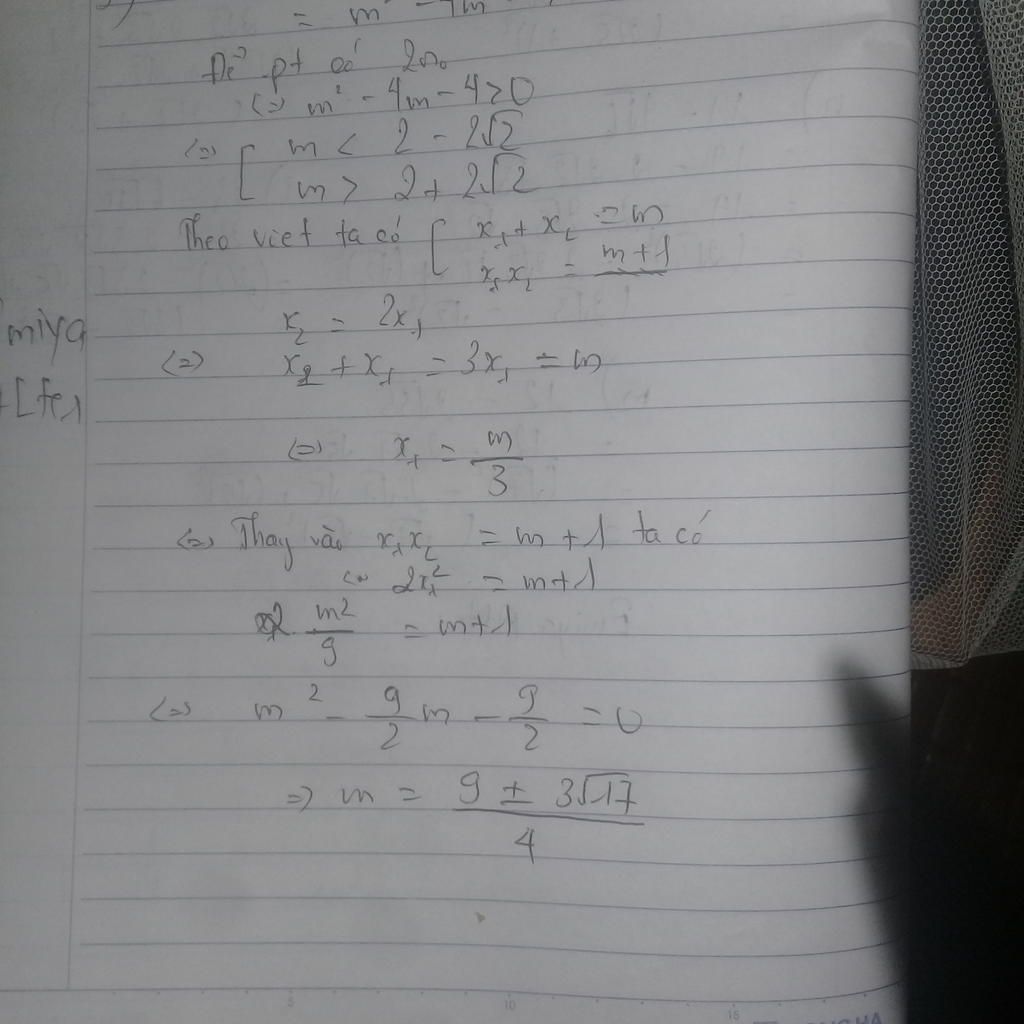 = m² - 4m
Để pt có 2no
<=> m² - 4m - 4 > 0
<=> [ m < 2 - 2√2
m > 2 + 2√2
Theo viet ta có [ x₁ + x₂ = m
x₁x₂ = m+1
x₂ = 2x₁
miya
<=> x₂ + x₁ = 3x₁ = m
<=> x₁ = m/3
<=> Thay vào x₁x₂ = m+1 ta có
<=> 2x₁² = m+1
2. m²/9 = m+1
<=> m² - 9/2 m - 9/2 = 0
=> m = (9 ± 3√17)/4
5 10 15